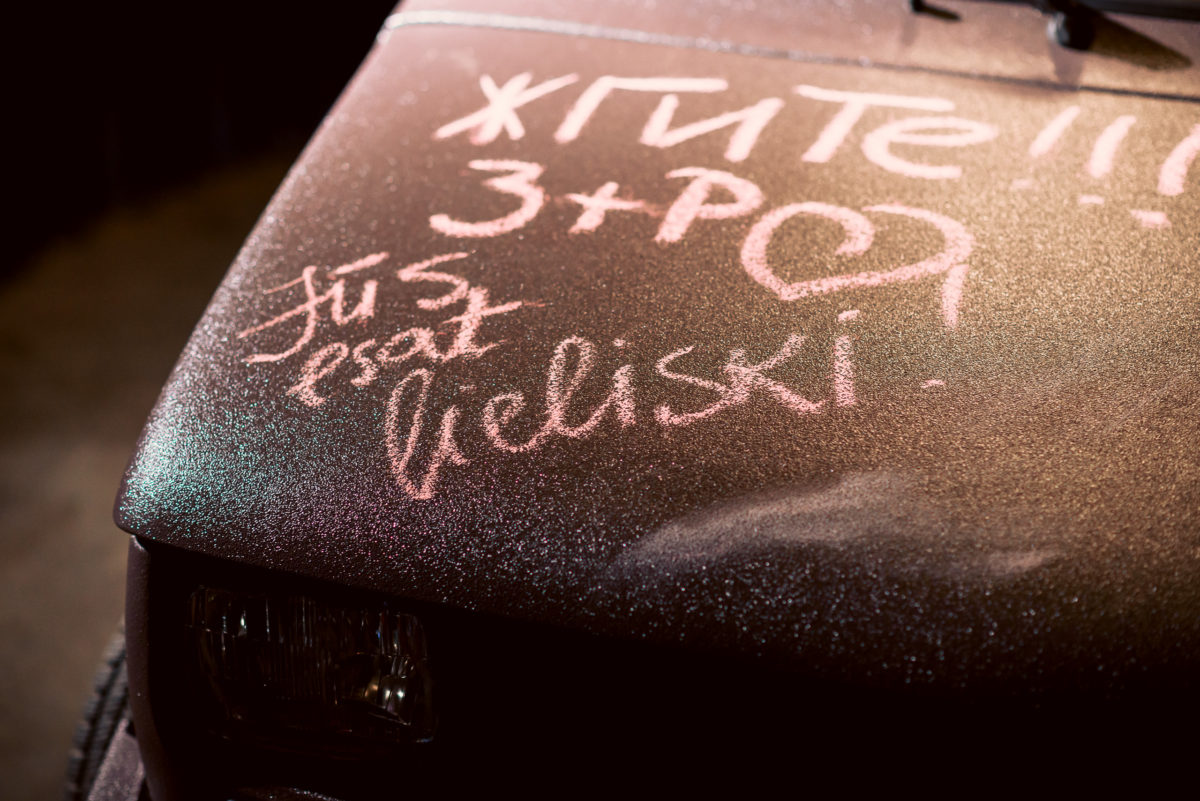 ЖГИТЕ!!!
З+Р
Jūs
esat
lieliski!